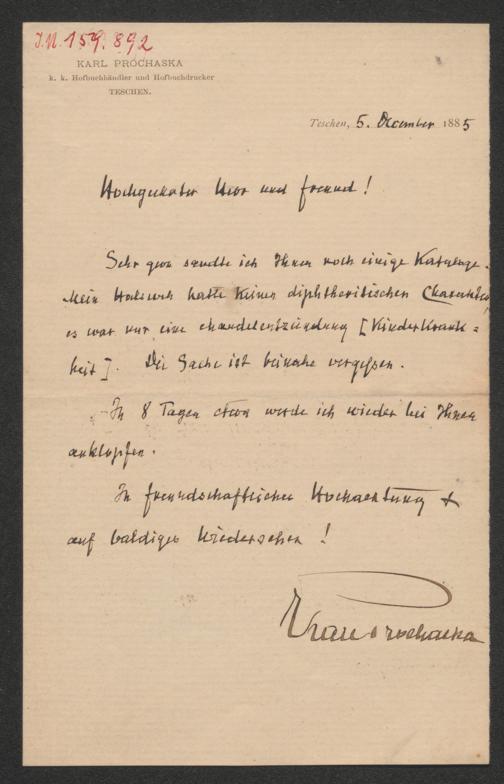 J.N. 159.892
KARL PROCHASKA
k. k. Hofbuchhändler und Hofbuchdrucker
TESCHEN.
Teschen, 5. December 1885
Hochgeehrter Herr und Freund!
Sehr gern sandte ich Ihnen noch einige Kataloge.
Mein Halsweh hatte keinen diphtheritischen Charakter
es war nur eine Mandelentzündung [Kinderkrank=
heit]. Die Sache ist beinahe vergessen.
In 8 Tagen etwa werde ich wieder bei Ihnen
anklopfen.
In freundschaftlicher Hochachtung &
auf baldiges Wiedersehen!
Karl Prochaska